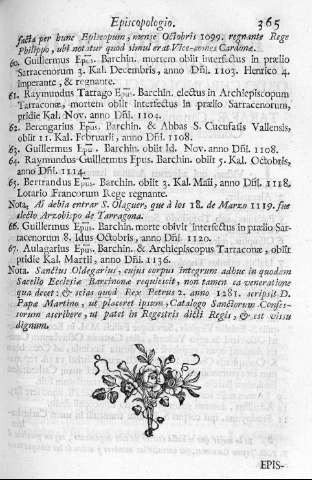 Episcopologio. 365
facta per hunc Episcopum, mense Octobris 1099. regnante Rege
Philippo, ubi notatur quod simul erat Vice-comes Cardonæ.
60. Guillermus Epus. Barchin. mortem obiit interfectus in prælio
Sarracenorum 3. Kal. Decembris, anno Dñi. 1103. Henrico 4.
imperante, & regnante.
61. Raymundus Tarrago Epus. Barchin. electus in Archiepiscopum
Tarraconæ, mortem obiit interfectus in prælio Sarracenorum,
pridie Kal. Nov. anno Dñi. 1104.
62. Berengarius Epus. Barchin. & Abbas S. Cucufatis Vallensis,
obiit 11. Kal. Februarii, anno Dñi. 1108.
63. Guillermus Epus. Barchin. obiit Id. Nov. anno Dñi. 1108.
64. Raymundus Guillermus Epus. Barchin. obiit 5. Kal. Octobris,
anno Dñi. 1114.
65. Bertrandus Epus. Barchin. obiit 3. Kal. Maii, anno Dñi. 1118.
Lotario Francorum Rege regnante.
Nota, Aì debia entrar S. Olaguer, que à los 18. de Marzo 1119. fue
electo Arzobispo de Tarragona.
66. Guillermus Epus. Barchin. morte obivit interfectus in prælio Sar-
racenorum 8. Idus Octobris, anno Dñi. 1120.
67. Aulagarius Epus. Barchin. & Archiepiscopus Tarraconæ, obiit
pridie Kal. Martii, anno Dñi. 1136.
Nota. Sanctus Oldegarius, cujus corpus integrum adhuc in quodam
Sacello Ecclesiæ Barcinonæ requiescit, non tamen ea veneratione
qua decet: & scias quod Rex Petrus 2. anno 1281. scripsit D.
Papæ Martino, ut placeret ipsum, Catalogo Sanctorum Confes-
sorum ascribere, ut patet in Regestris dicti Regis, & est visu
dignum.
EPIS-